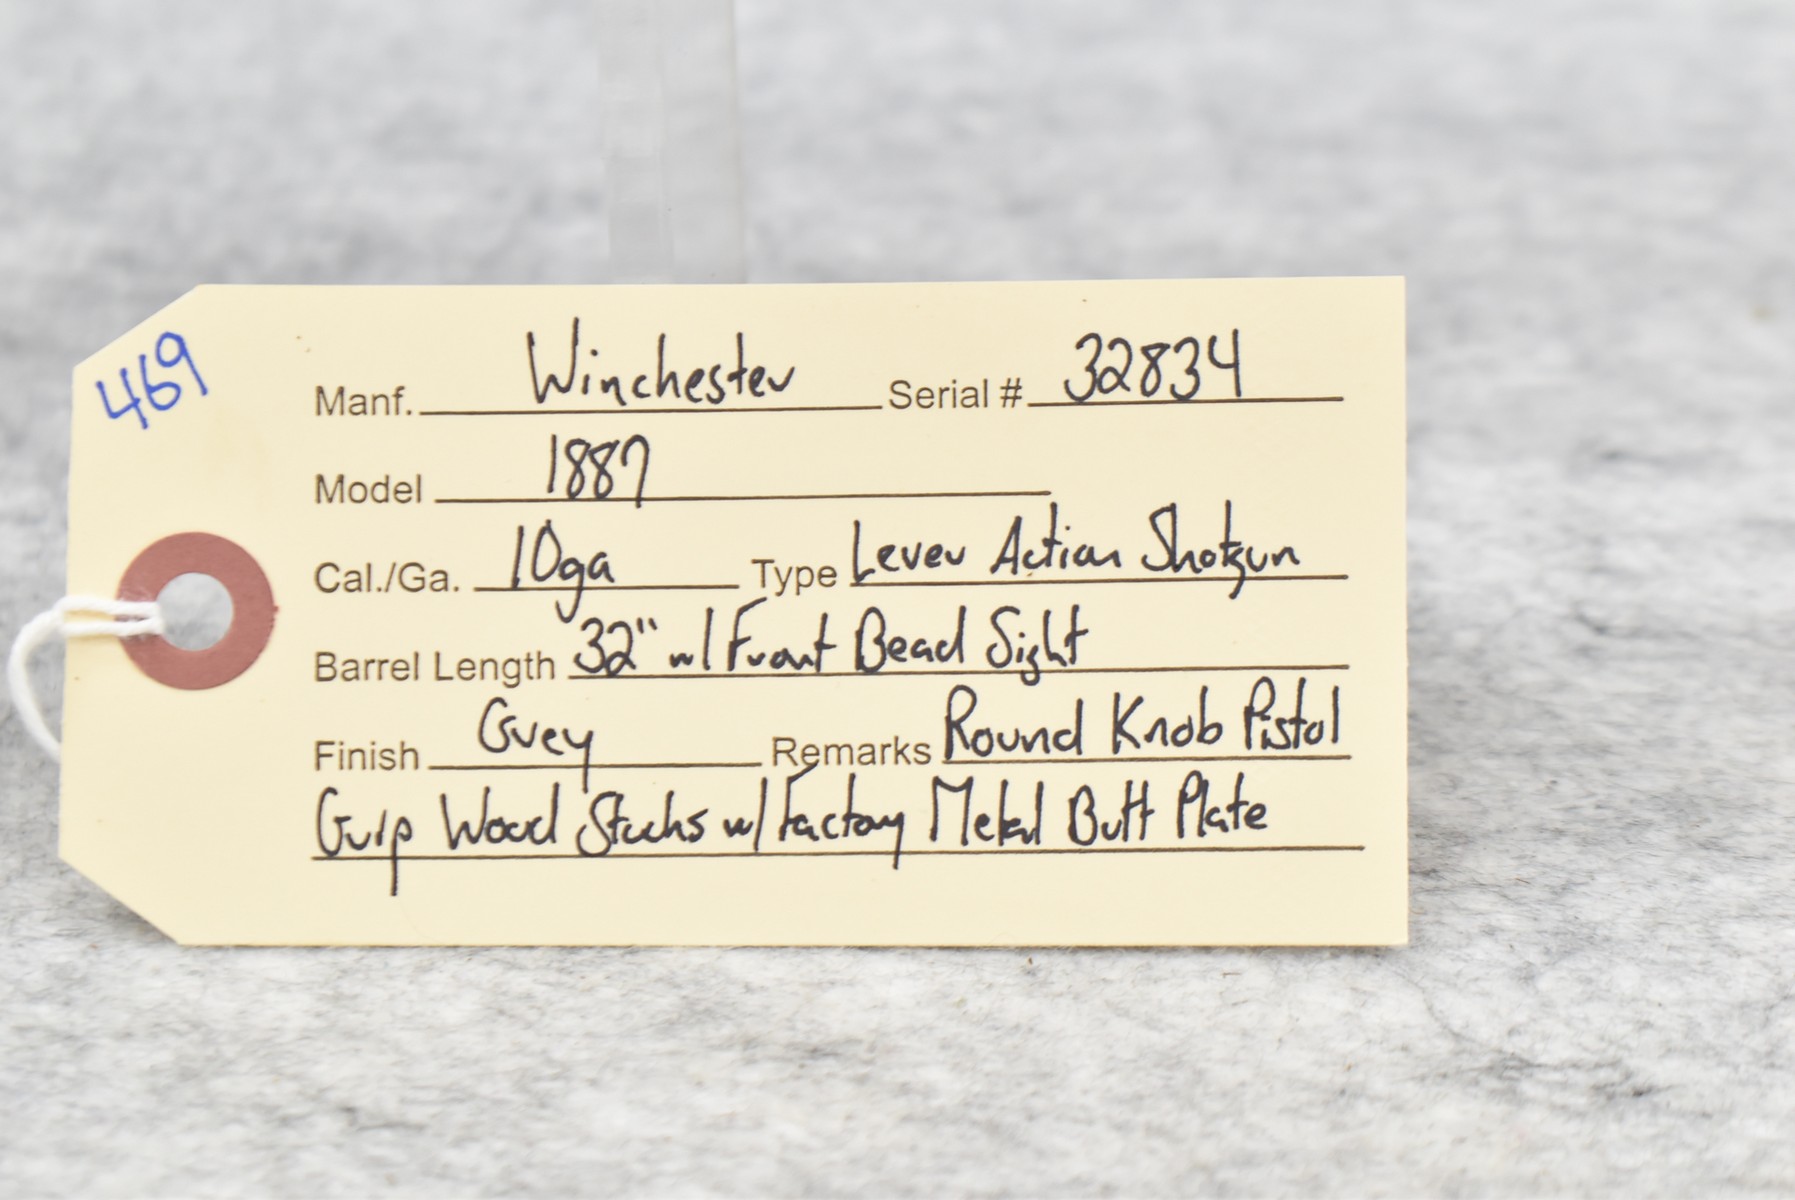 469
Manf. Winchester Serial # 32834
Model 1887
Cal./Ga. 10ga Type Lever Action Shotgun
Barrel Length 32" w/ Front Bead Sight
Finish Grey Remarks Round Knob Pistol
Grip Wood Stocks w/ Factory Metal Butt Plate